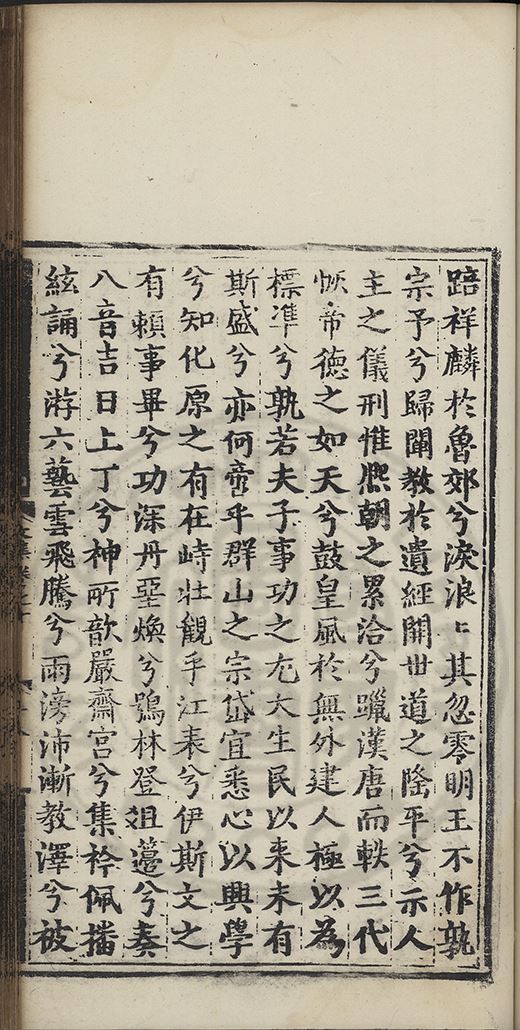 踣祥麟於魯郊兮淚浪〻其忽零明王不作孰
宗予兮歸闡教於遺經開世道之隆平兮示人
主之儀刑惟熙朝之累洽兮躐漢唐而軼三代
恢帝德之如天兮鼓皇風於無外建人極以為
標準兮孰若夫子事功之尤大生民以来未有
斯盛兮亦何啻乎群山之宗岱宜悉心以興學
兮知化原之有在峙壯觀乎江表兮伊斯文之
有賴事畢兮功深丹堊煥兮鴞林登俎薆兮奏
八音吉日上丁兮神所歆嚴齋宮兮集衿佩播
絃誦兮游六藝雲飛騰兮雨滂沛漸教澤兮被